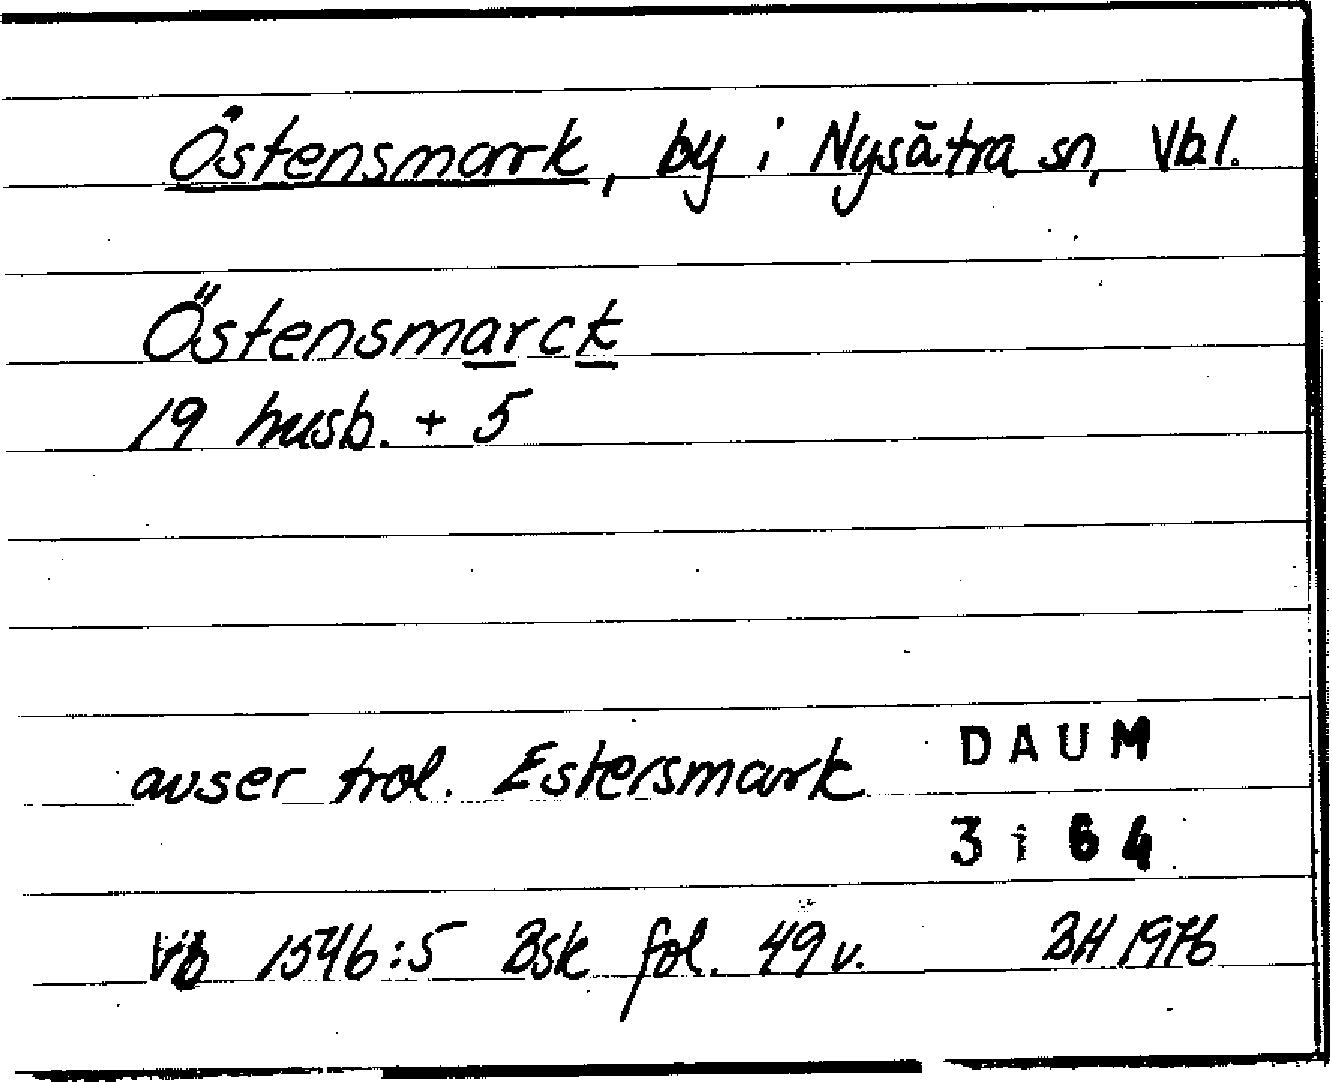 Östensmark, by i Nysätra sn, Vbl.
Östensmarck
19 husb. + 5
avser trol. Estersmark
DAUM
3164
Vb 1546:5 Bsk fol. 49v. BH 1976